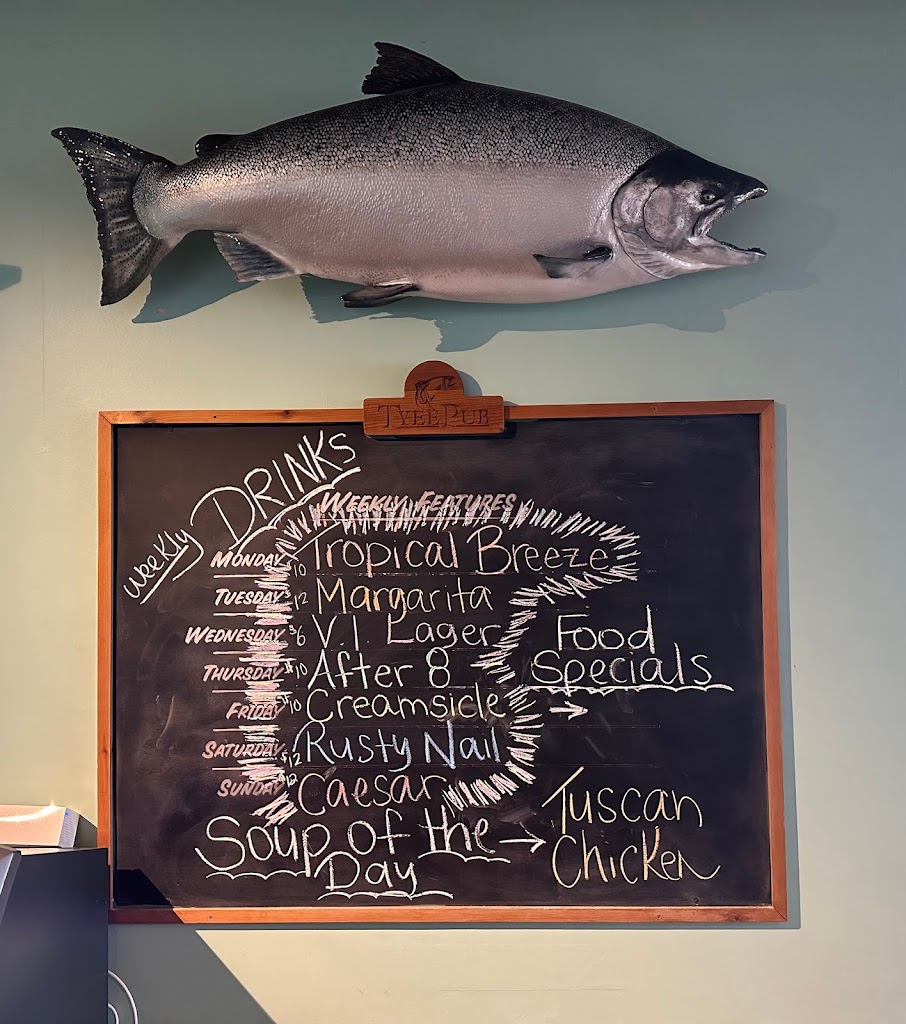 TYEE PUB
Weekly DRINKS
WEEKLY FEATURES
MONDAY $10 Tropical Breeze
TUESDAY $12 Margarita
WEDNESDAY $6 V.I. Lager
THURSDAY $10 After 8
FRIDAY $10 Creamsicle
SATURDAY $12 Rusty Nail
SUNDAY $12 Caesar
Food
Specials
→
Soup of the →
Day
Tuscan
Chicken